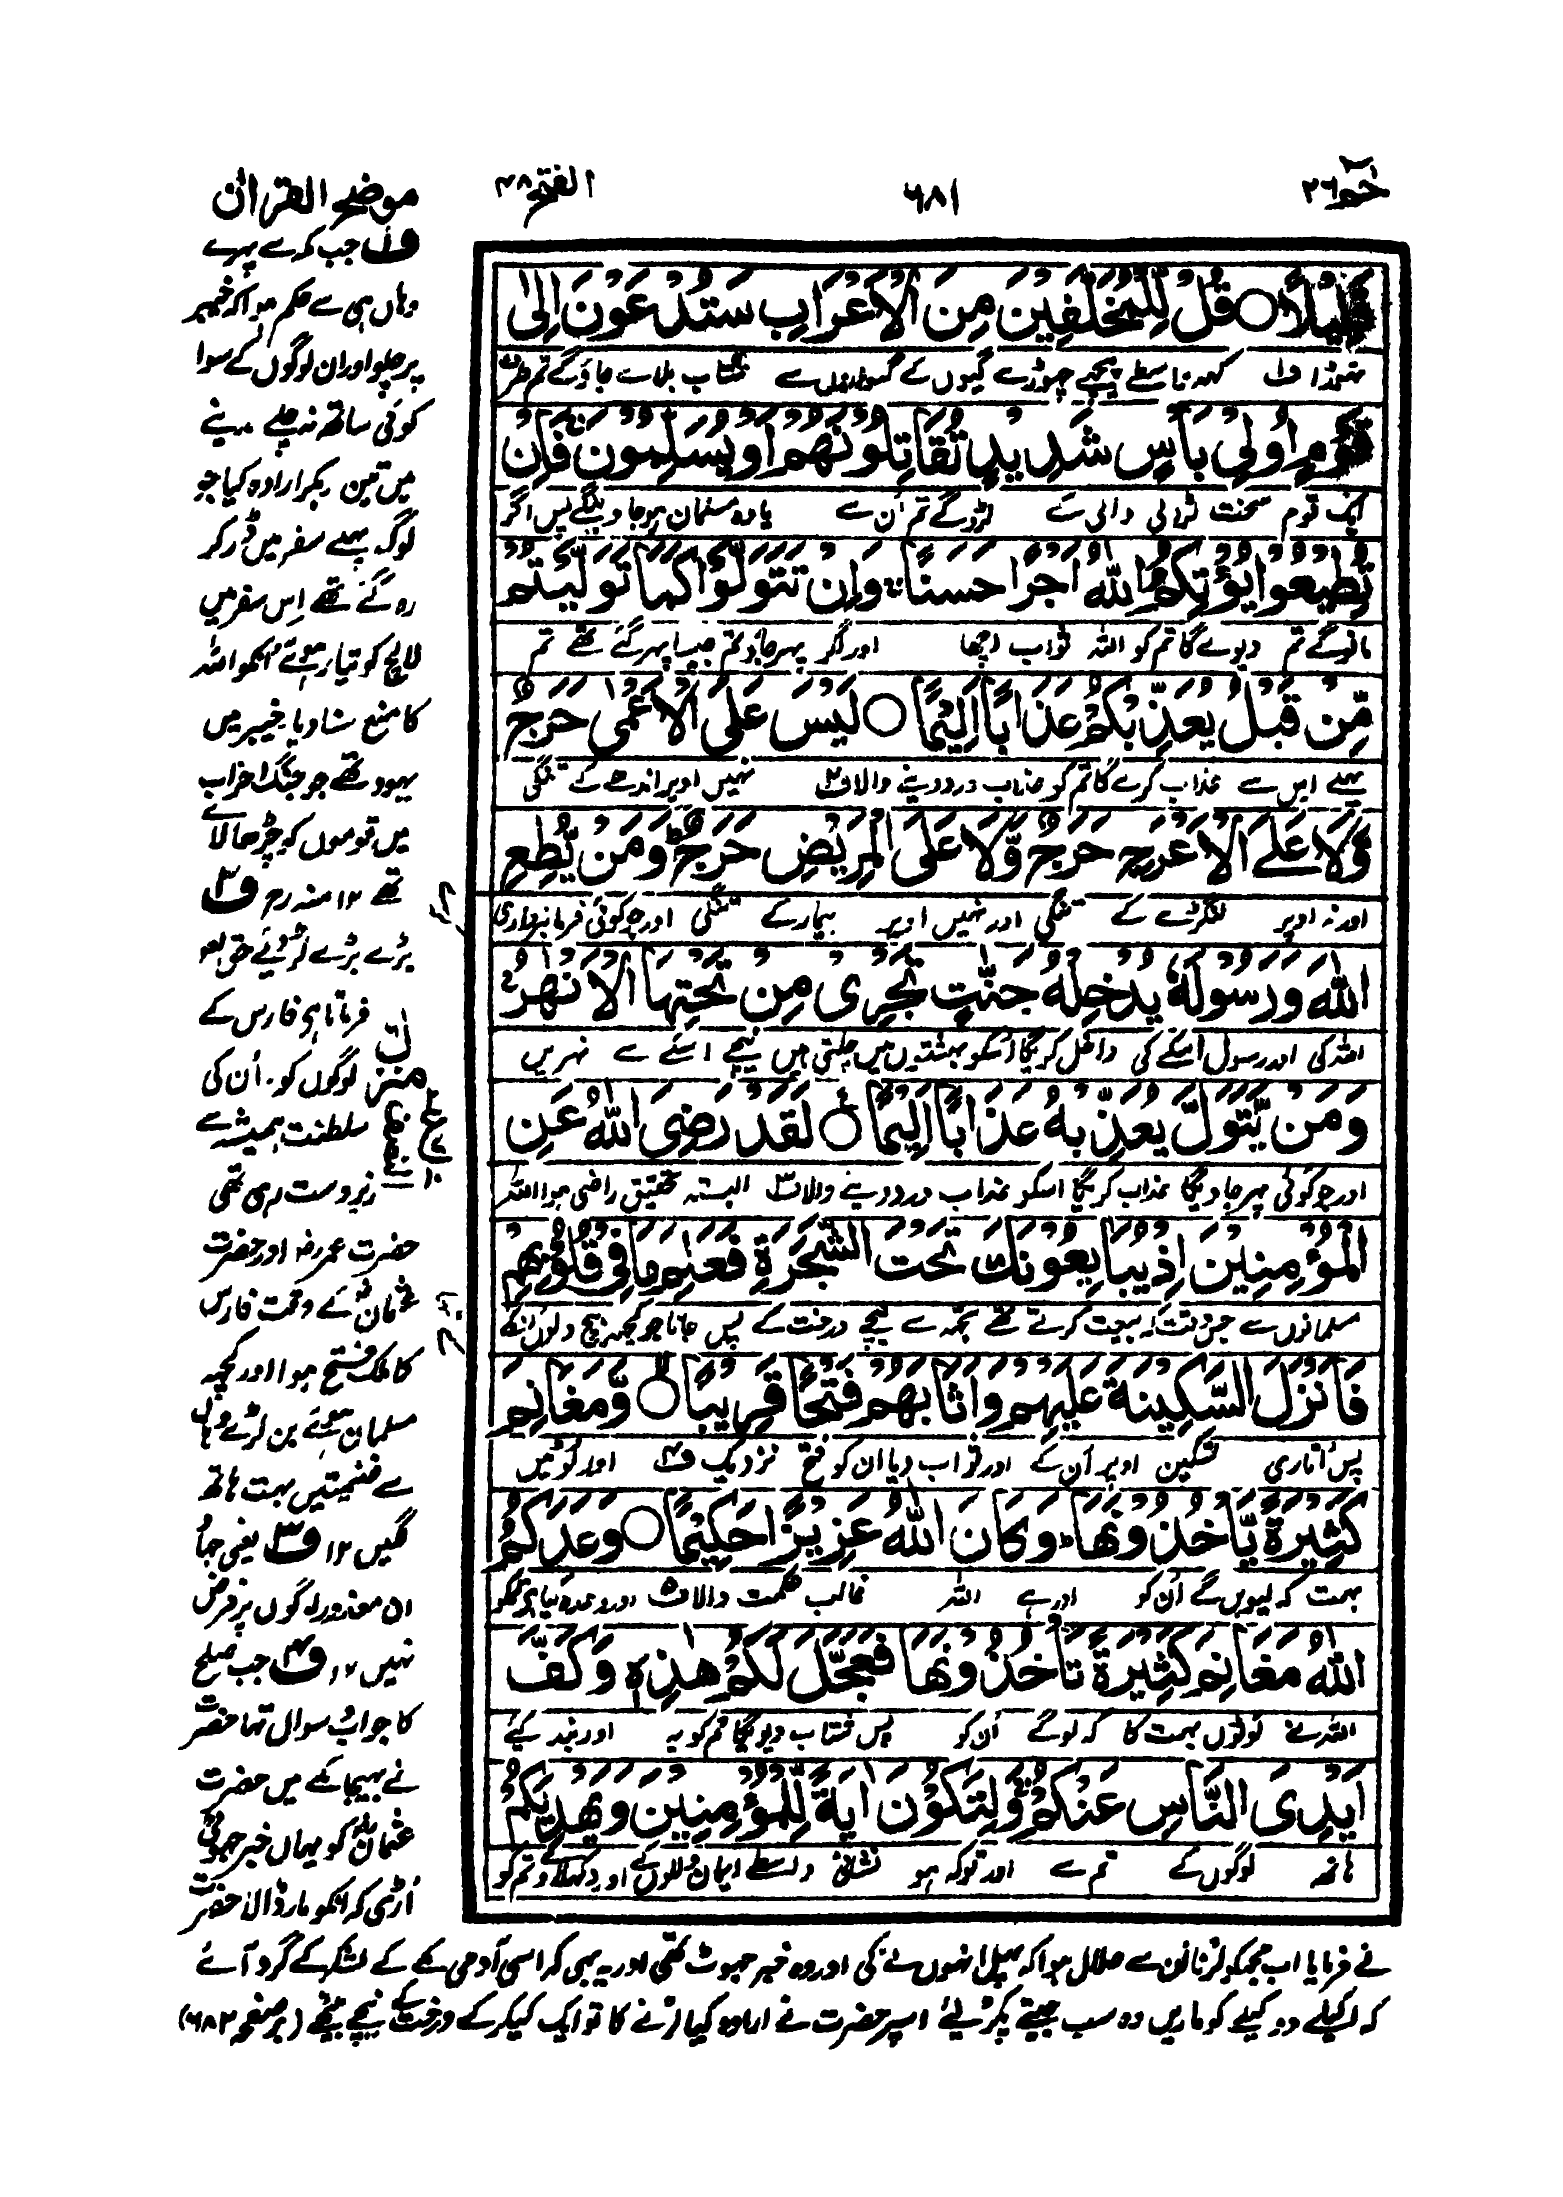 حٰمٓ ٢٦
٦٨١
الفتح ٤٨
قَلِيْلًا ○ قُلْ لِّلْمُخَلَّفِيْنَ مِنَ الْاَعْرَابِ سَتُدْعَوْنَ اِلٰى
تھوڑا ف۱ کہہ واسطے پیچھے چھوڑے گیوں کے گنواروں سے شتاب بلائے جاؤگے تم طرف
قَوْمٍ اُولِيْ بَاْسٍ شَدِيْدٍ تُقَاتِلُوْنَهُمْ اَوْ يُسْلِمُوْنَ فَاِنْ
ایک قوم سخت لڑائی والی کے لڑوگے تم اُن سے یا وہ مسلمان ہوجاوینگے پس اگر
تُطِيْعُوْا يُؤْتِكُمُ اللّٰهُ اَجْرًا حَسَنًا وَاِنْ تَتَوَلَّوْا كَمَا تَوَلَّيْتُمْ
مانوگے تم دیوے گا تم کو اللہ ثواب اچھا اور اگر پھر جاؤ تم جیسا پھر گئے تھے تم
مِّنْ قَبْلُ يُعَذِّبْكُمْ عَذَابًا اَلِيْمًا ○ لَيْسَ عَلَى الْاَعْمٰى حَرَجٌ
پہلے اس سے عذاب کرے گا تم کو عذاب درد دینے والا ف۲ نہیں اوپر اندھے کے تنگی
وَّلَا عَلَى الْاَعْرَجِ حَرَجٌ وَّلَا عَلَى الْمَرِيْضِ حَرَجٌ وَمَنْ يُّطِعِ
اور نہ اوپر لنگڑے کے تنگی اور نہیں اوپر بیمار کے تنگی اور جو کوئی فرمانبرداری
اللّٰهَ وَرَسُوْلَهٗ يُدْخِلْهُ جَنّٰتٍ تَجْرِيْ مِنْ تَحْتِهَا الْاَنْهٰرُ
اللہ کی اور رسول اسکے کی داخل کریگا اسکو بہشتوں میں چلتی ہیں نیچے اسکے سے نہریں
وَمَنْ يَّتَوَلَّ يُعَذِّبْهُ عَذَابًا اَلِيْمًا ○ لَقَدْ رَضِيَ اللّٰهُ عَنِ
اور جو کوئی پھر جاویگا عذاب کریگا اسکو عذاب درد دینے والا ف۳ البتہ تحقیق راضی ہوا اللہ
الْمُؤْمِنِيْنَ اِذْ يُبَايِعُوْنَكَ تَحْتَ الشَّجَرَةِ فَعَلِمَ مَا فِيْ قُلُوْبِهِمْ
مسلمانوں سے جس وقت کہ بیعت کرتے تھے تجھ سے نیچے درخت کے پس جانا جو کچھ بیچ دلوں انکے
فَاَنْزَلَ السَّكِيْنَةَ عَلَيْهِمْ وَاَثَابَهُمْ فَتْحًا قَرِيْبًا ○ وَّمَغَانِمَ
پس اُتاری تسکین اوپر اُن کے اور ثواب دیا ان کو فتح نزدیک ف۴ اور لوٹیں
كَثِيْرَةً يَّاْخُذُوْنَهَا وَكَانَ اللّٰهُ عَزِيْزًا حَكِيْمًا ○ وَعَدَكُمُ
بہت کہ لیویں گے اُن کو اور ہے اللہ غالب حکمت والا ف۵ اور وعدہ کیا ہے تم کو
اللّٰهُ مَغَانِمَ كَثِيْرَةً تَاْخُذُوْنَهَا فَعَجَّلَ لَكُمْ هٰذِهٖ وَكَفَّ
اللہ نے لوٹوں بہت کا کہ لوگے اُن کو پس شتاب دیویگا تم کو یہ اور بند کیے
اَيْدِيَ النَّاسِ عَنْكُمْ وَلِتَكُوْنَ اٰيَةً لِّلْمُؤْمِنِيْنَ وَيَهْدِيَكُمْ
ہاتھ لوگوں کے تم سے اور توکہ ہو نشانی واسطے ایمان والوں کے اور دکھلاوے تم کو
موضح القراٰن
ف۱ جب کہ سے پہرے
وہاں ہی سے حکم ہوا کہ خیبر
پر چلو اور ان لوگوں کے سوا
کوئی ساتھ نہ چلے مدینے
میں تین رہکر ارادہ کیا جو
لوگ پہلے سفر میں ڈر کر
رہ گئے تھے اِس سفر میں
لالچ کو تیار ہوئے اُنکو اللہ
کا منع سنا دیا خیبر میں
یہود تھے جو جنگ احزاب
میں قوموں کو چڑھا لائے
تھے ١٢ منہ رح ف۲
بڑے بڑے لڑ
فرماتا ہی فارس کے
لوگوں کو. اُن کی
سلطنت ہمیشہ سے
زبردست رہی تھی
حضرت عمر رضہ اور حضرت
عثمان کے وقت فارس
کا ملک فتح ہوا اور کچھ
مسلمان ہوئے بن لڑے وہاں
سے غنیمتیں بہت ہاتھ
لگیں ١٢ ف۳ یعنی جہاد
ان معذور لوگوں پر فرض
نہیں ١٢ ف۴ جب صلح
کا جواب سوال تھا حضرت
نے بھیجا مکے میں حضرت
عثمان کو یہاں خبر جھوٹی
اُڑی کہ انکو مار ڈالا حضرت
نے فرمایا اب مجکو لڑنا اُن سے حلال ہوا کہ پہل انھوں نے کی اور وہ خبر جھوٹ تھی اور یہ بھی کہ اسی آدمی مکے کے لشکر کے گرد آئے
کہ اکیلے دوکیلے کو ماریں وہ سب جیتے پکڑ لئے اسپر حضرت نے ارادہ کیا لڑنے کا تو ایک کیکر کے درخت کے نیچے بیٹھے (بر صفحہ ٦٨٢)